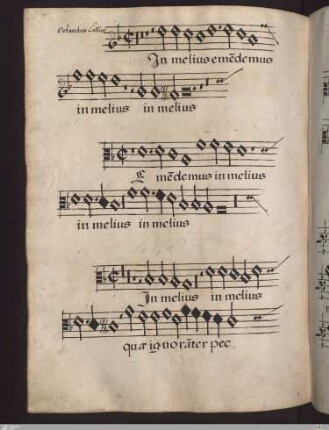 Orlandus Lassus
In melius emẽdemus
in melius in melius
E mẽdemus in melius
in melius in melius
In melius in melius
quæ ignorãter pec